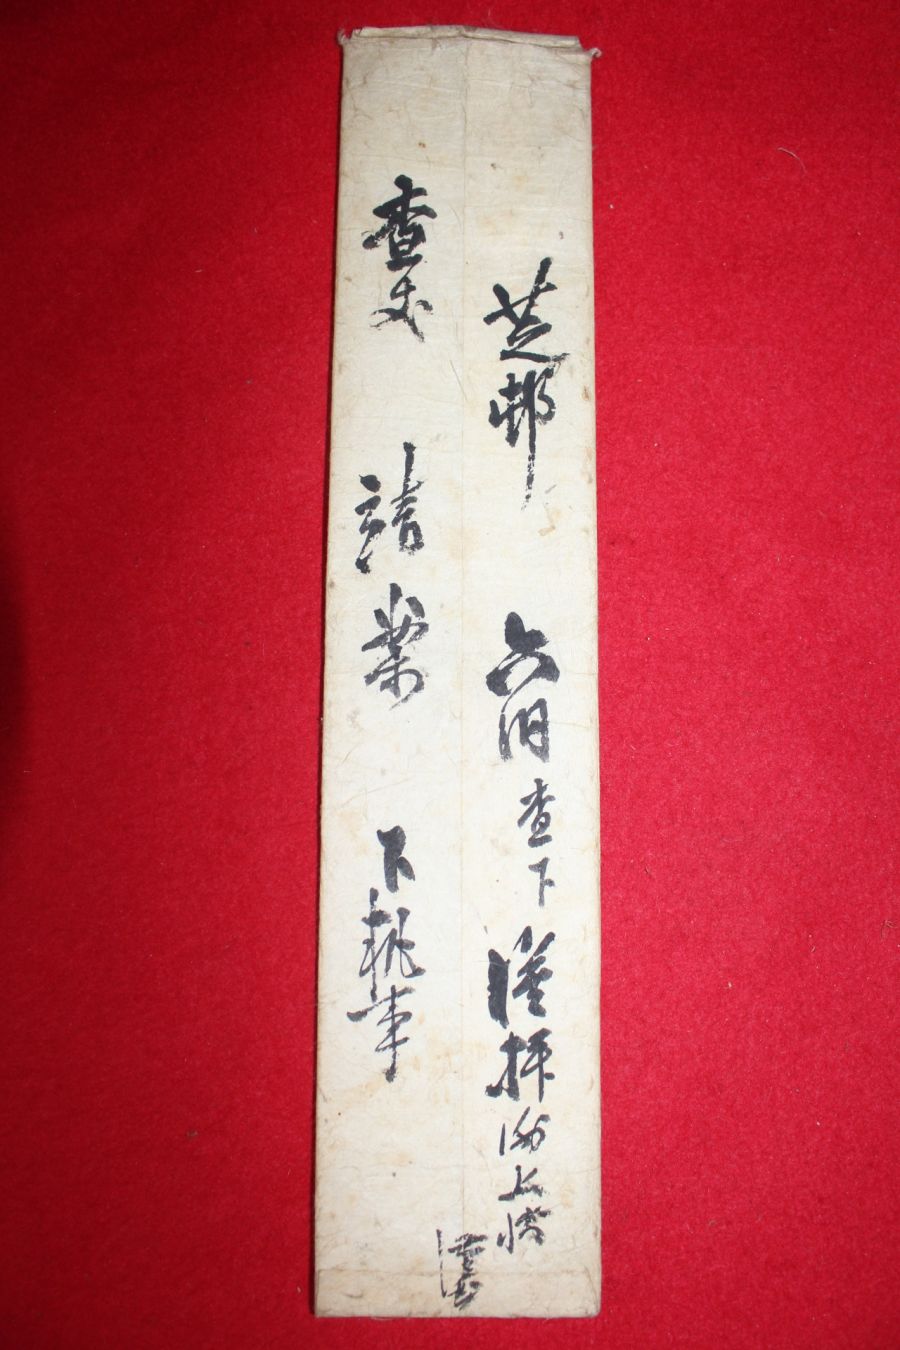 芝邨 六月 查下 謹拜謝上候
查丈 請案 下執事
謹封